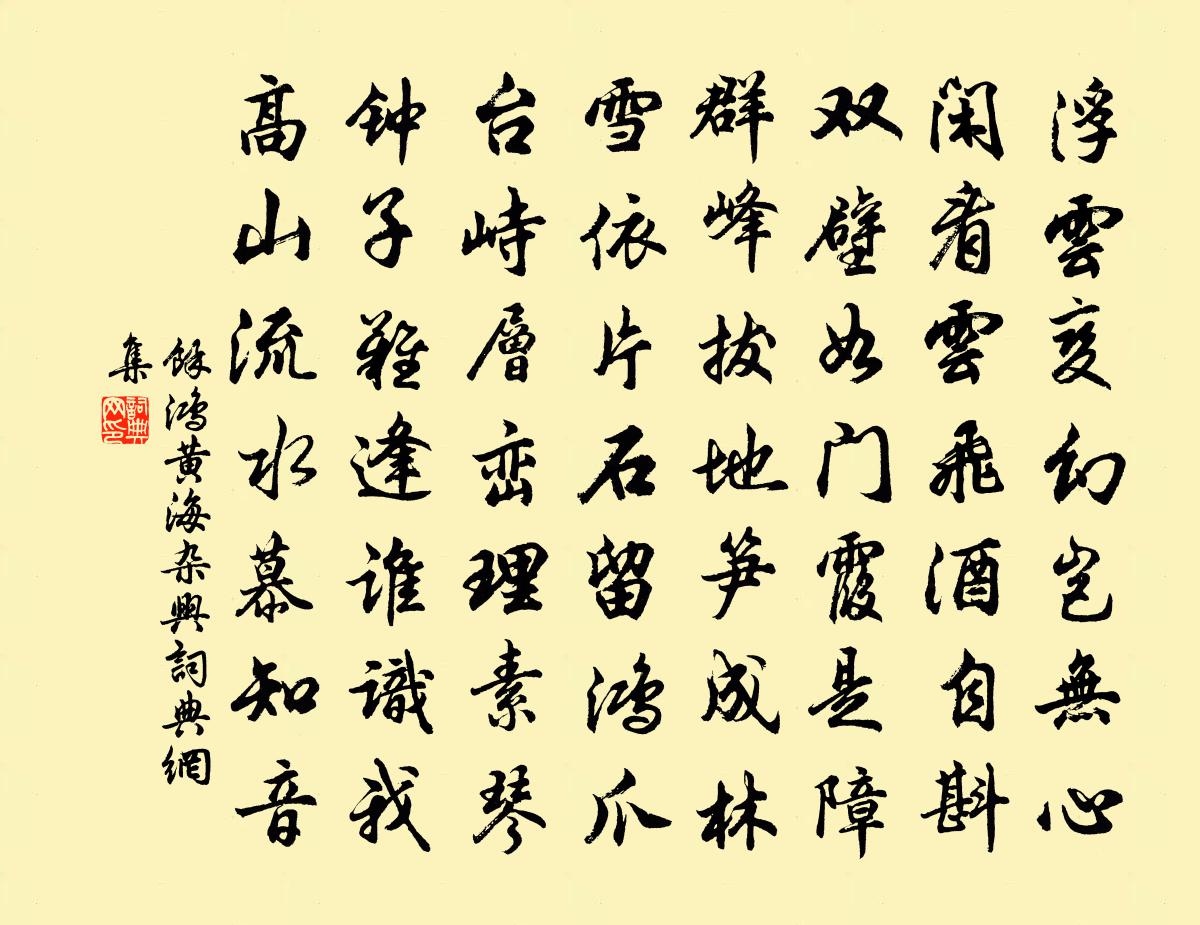 浮雲变幻岂無心
闲看雲飛酒自斟
双壁如门霞是障
群峰拔地笋成林
雪依片石留鸿爪
台峙層峦理素琴
钟子难逢谁識我
高山流水慕知音
鸿黄海杂興詞典網
集
詞典網印